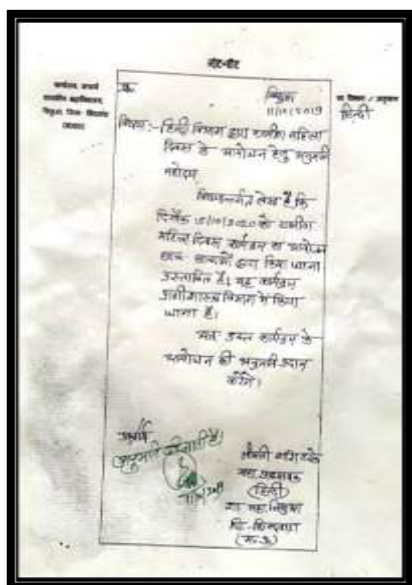 नोट-शीट
कार्यालय, प्राचार्य
शासकीय महाविद्यालय,
बिछुआ, जिला छिंदवाड़ा
(म०प्र०)
बिछुआ
11/10/2019
हिन्दी
विषय:- हिन्दी विभाग द्वारा ग्रामीण महिला
दिवस के आयोजन हेतु अनुमती
महोदय,
विषयान्तर्गत लेख है कि
दिनाँक 15/10/2020 को ग्रामीण
महिला दिवस कार्यक्रम का आयोजन
छात्र द्वारा किया जाना
प्रस्तावित है। यह कार्यक्रम
विभाग में किया
जाना है।
अतः उक्त कार्यक्रम के
आयोजन की अनुमती प्रदान
करेंगे।
प्राचार्य
अनुमति दी जाती है।
(हिन्दी)
शा. महा. बिछुआ
जि.- छिन्दवाड़ा
(म.प्र.)